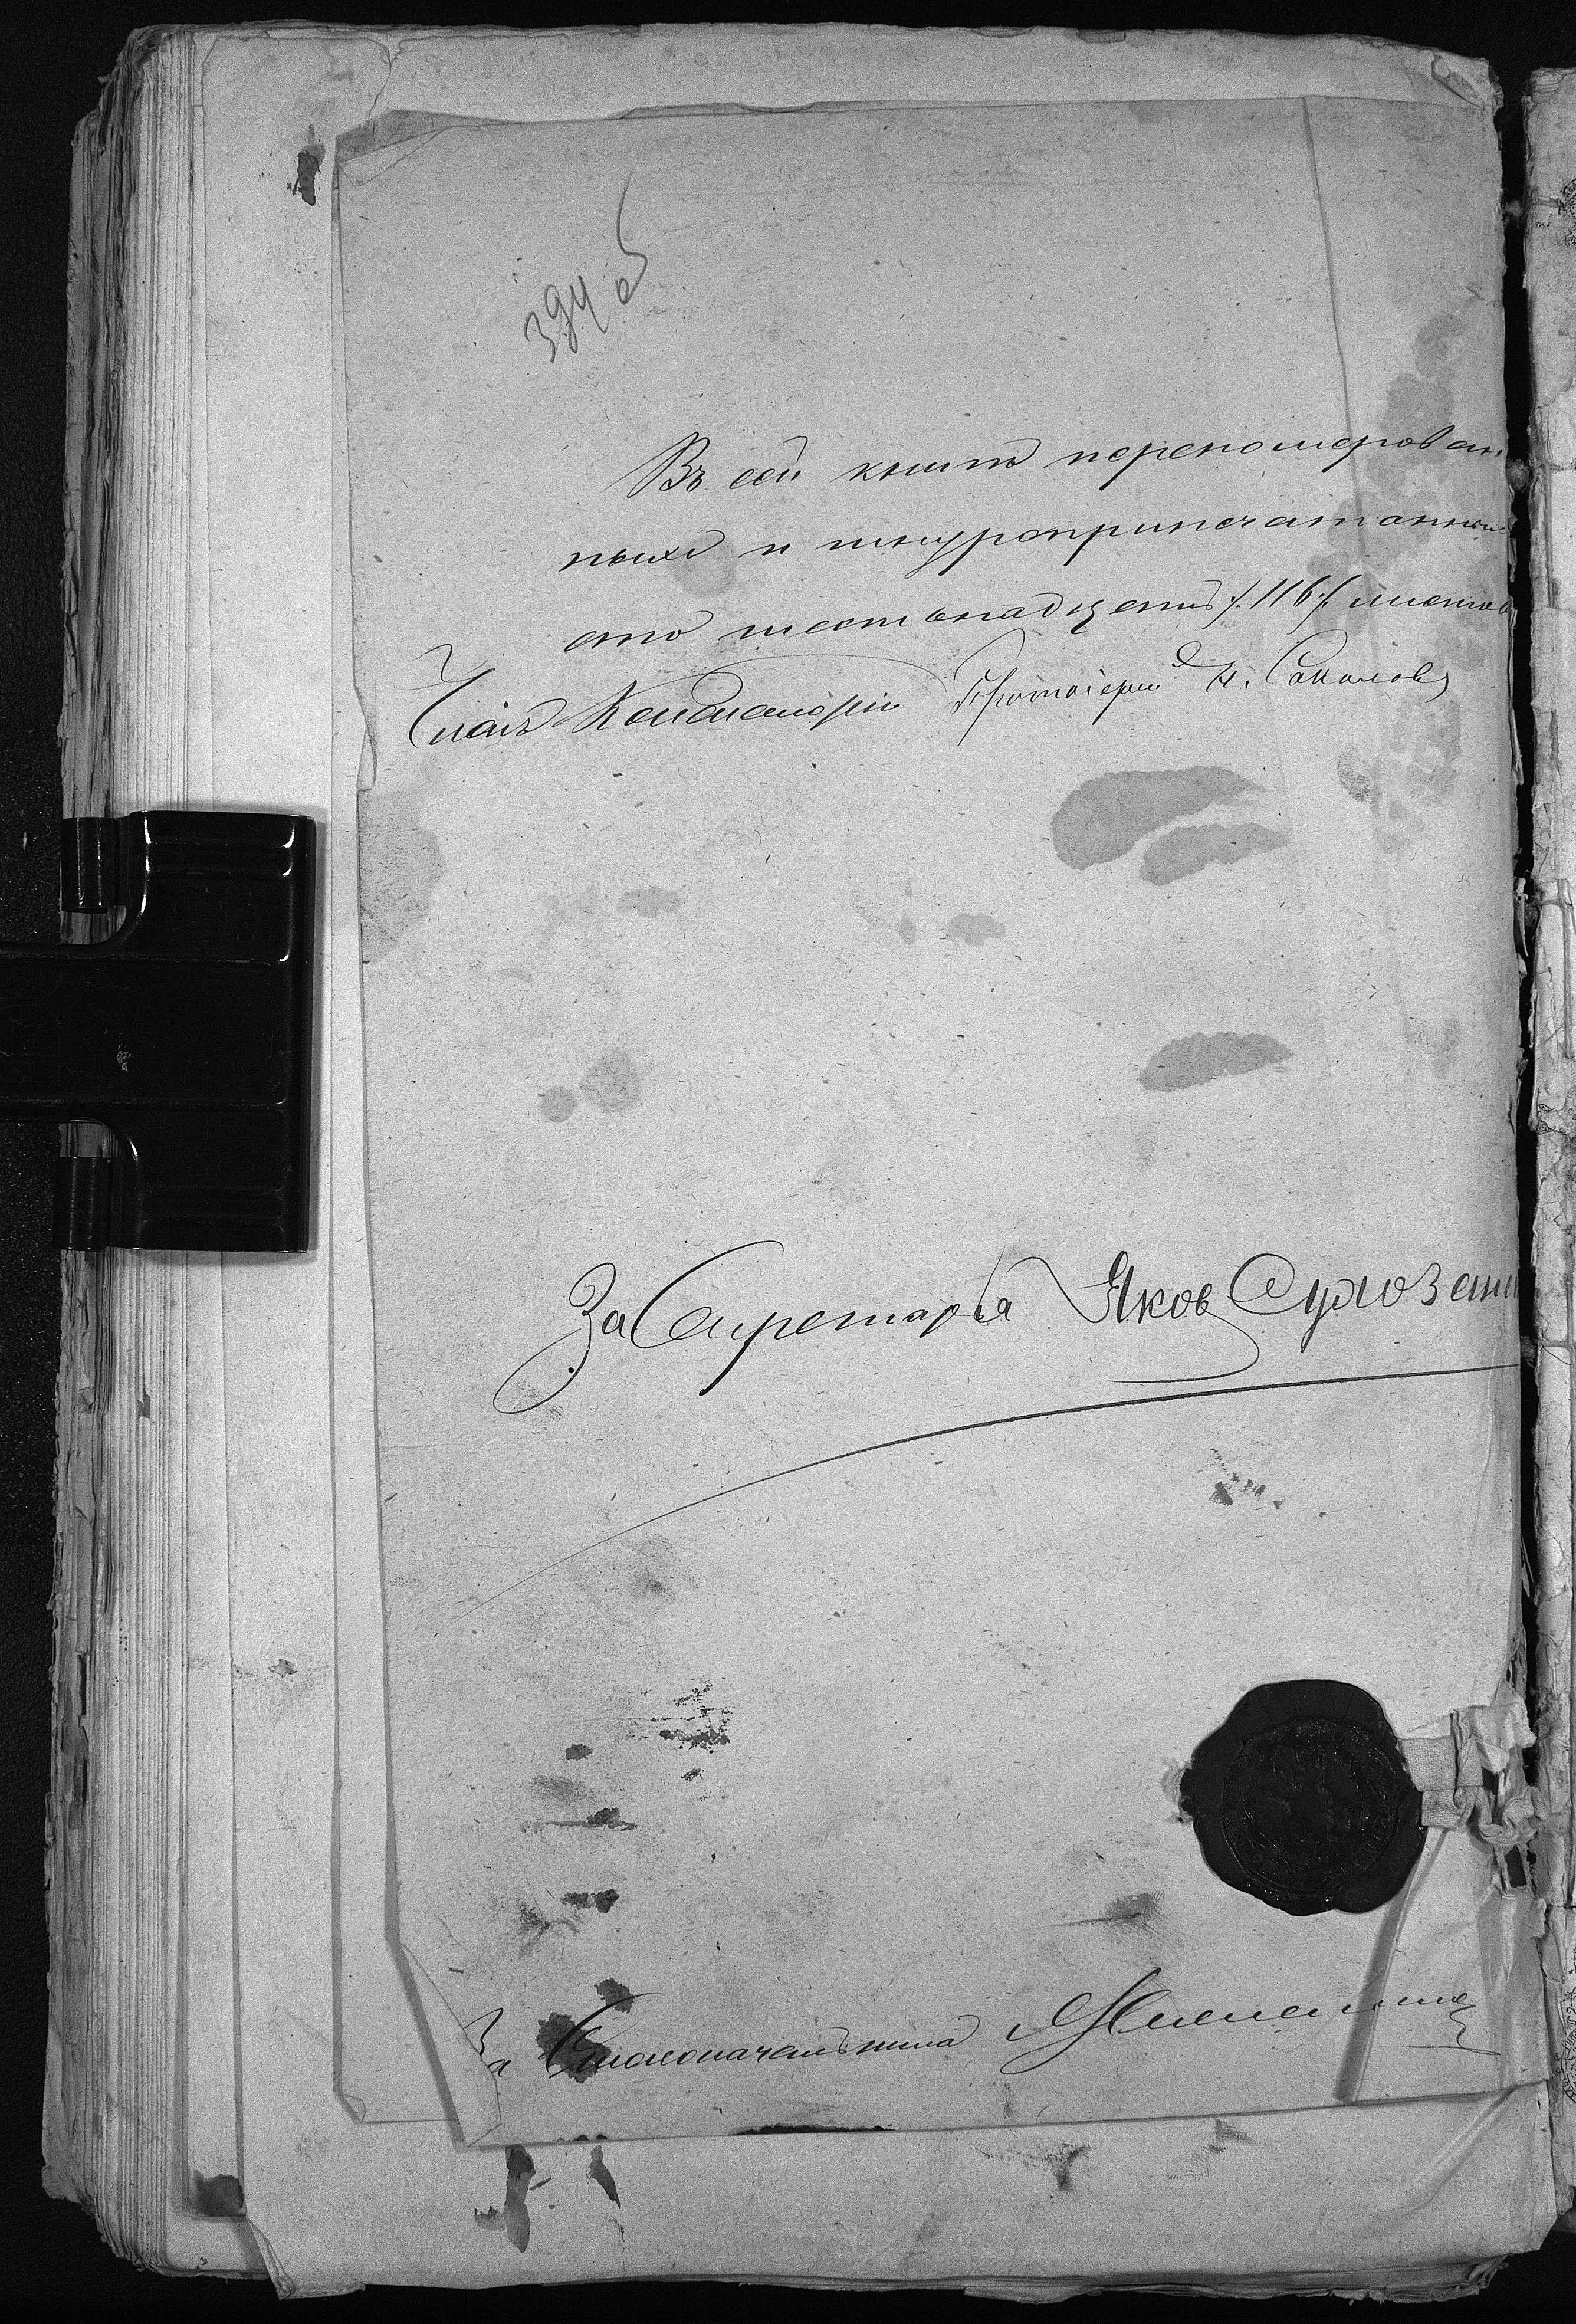 394 об
Въ сей книгѣ перепомерован
ныхъ и шнуроприпечатанныхъ
сто шестьнадцать /.116./ листовъ
Членъ Консисторіи Протоіерей Н. Соколовъ
За Секретаря Яковъ
За Столоначальника